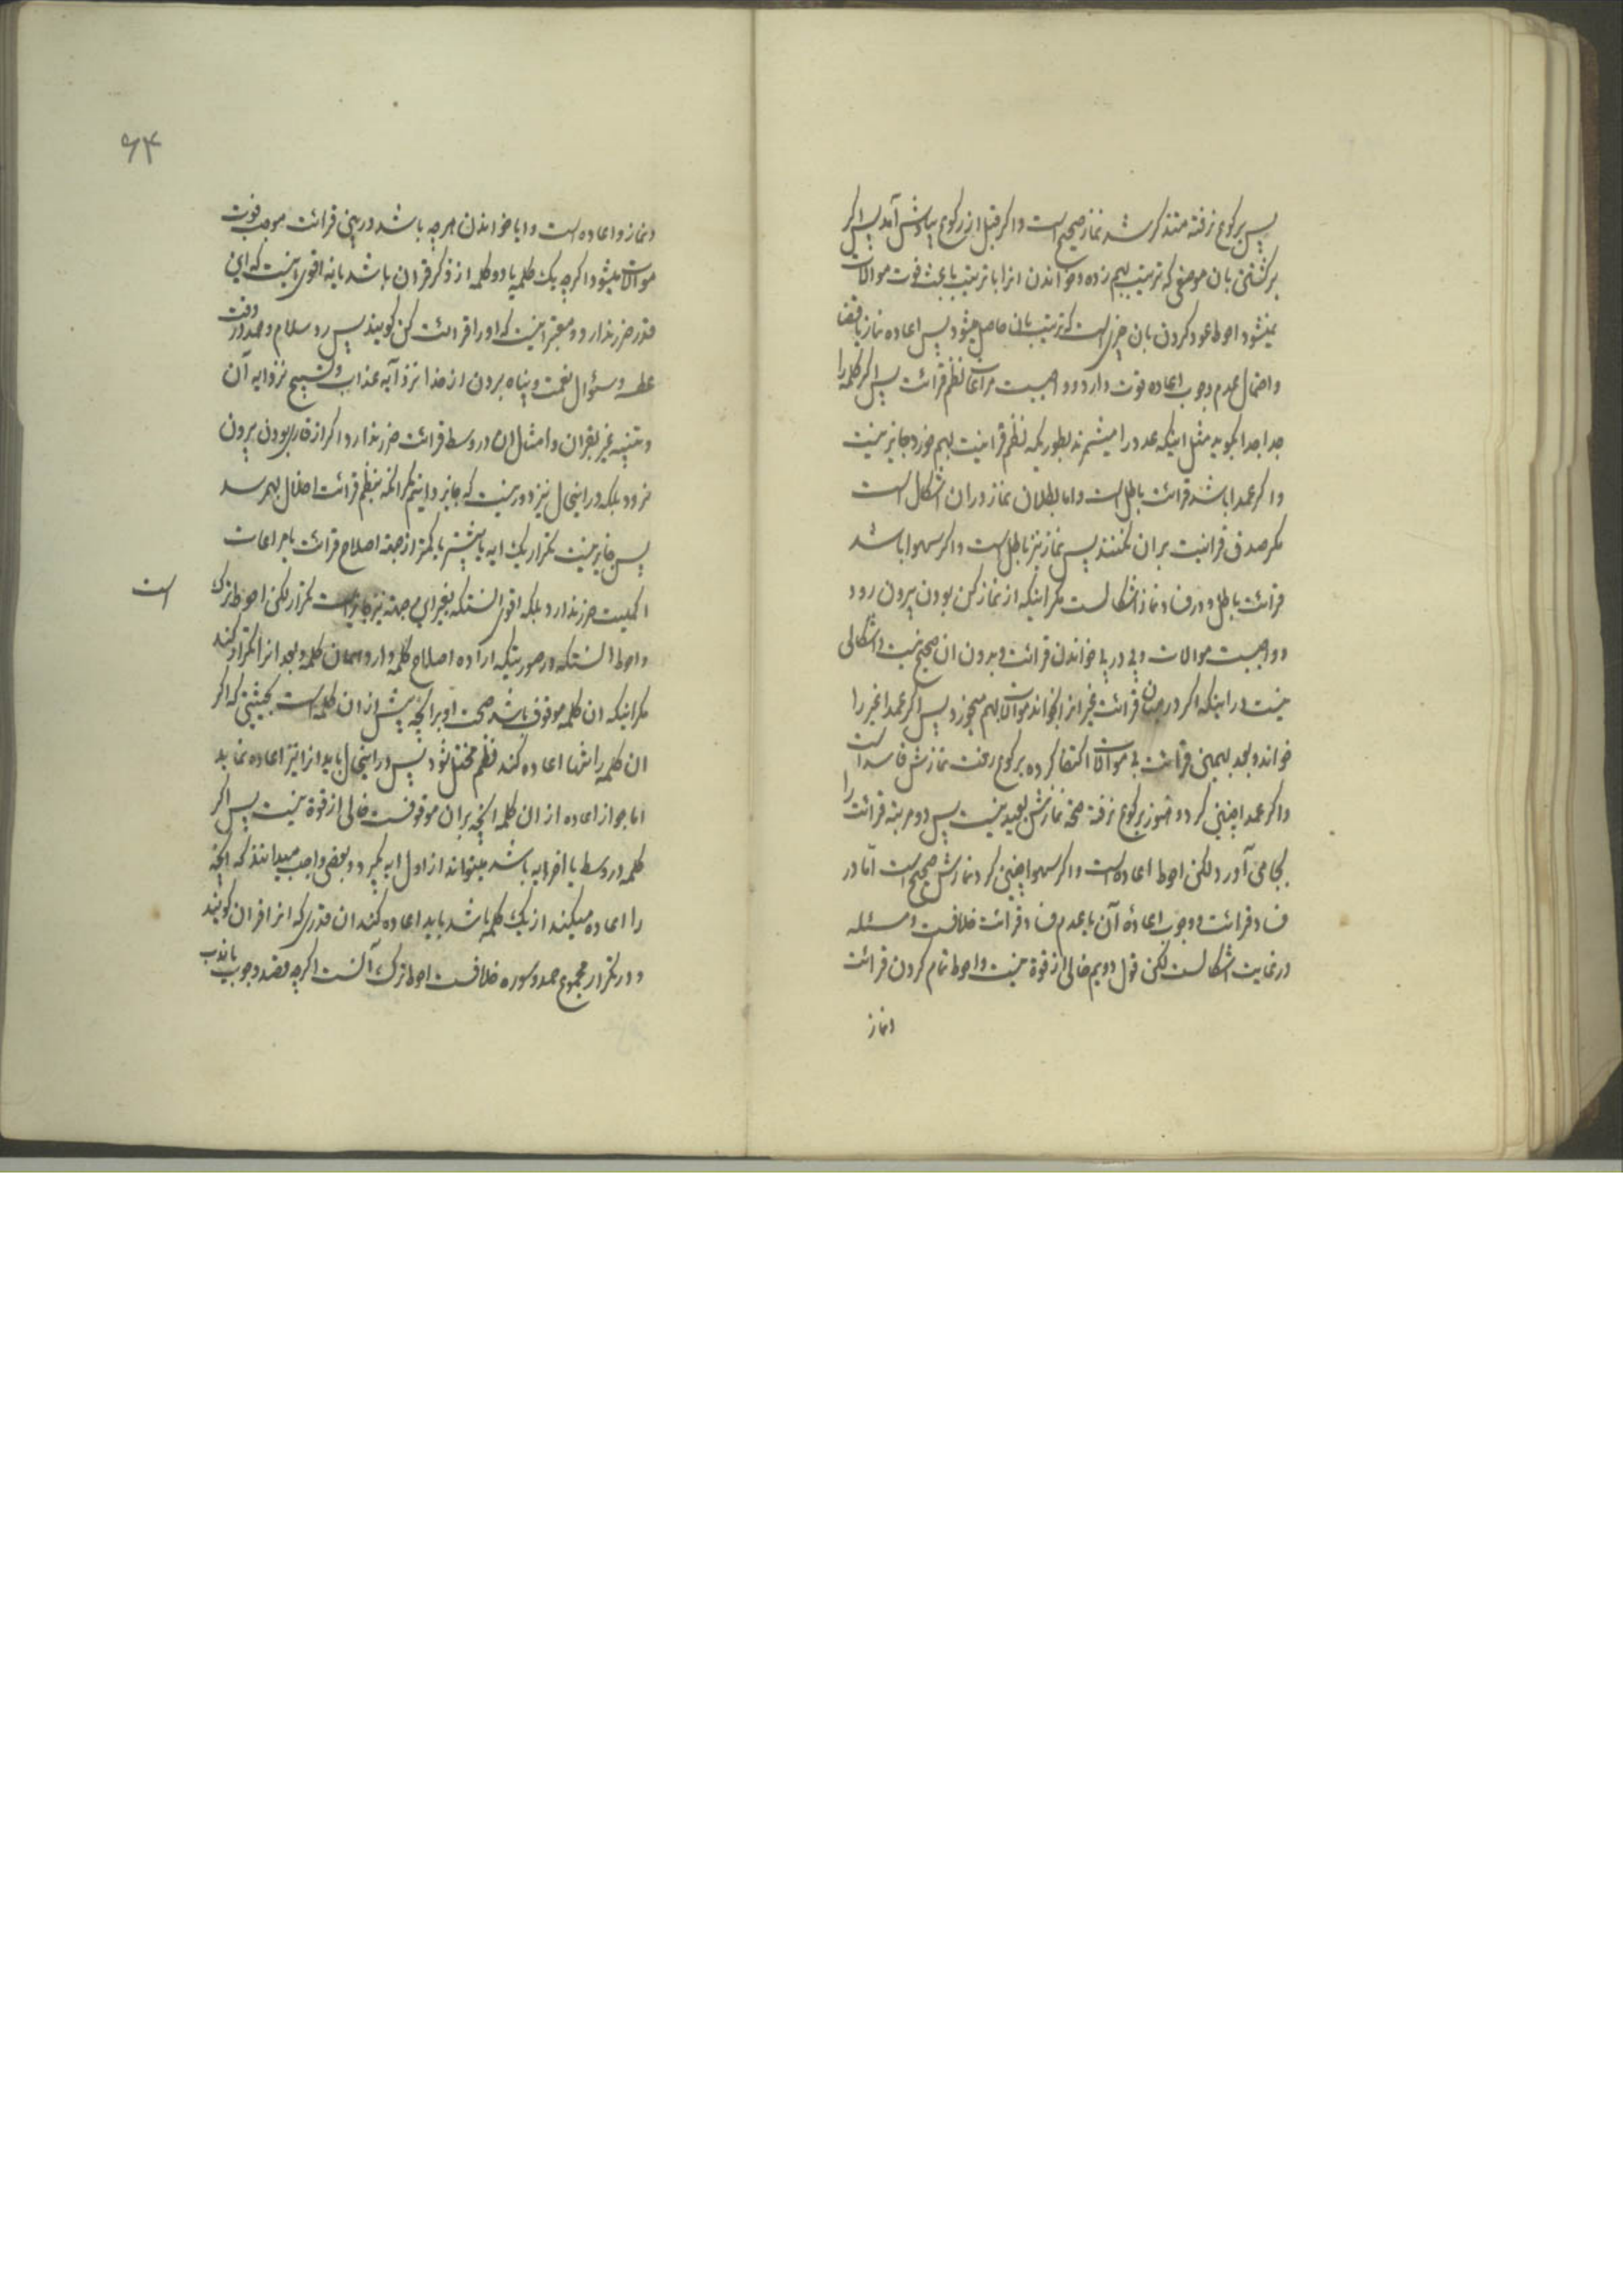 پس برکوع نرفته متذکر شد نماز صحیح است و اکر قبل از رکوع بیادش آمد پس اکر
برکشتن بان موضعی که ترتیب بهم زده و خواندن انرا با ترتیب باعث فوت موالات
نمیشود احوط عود کردن بان جزء است که ترتیب بان حاصل میشود پس اعاده نماز یا قضا
و احتمال عدم وجوب اعاده قوت دارد و واجبست مراعات نظم قرائت پس اکر کلمه را
جدا جدا بکوید مثل اینکه عدد را میشمرند بطوریکه نظم قرانیت بهم خورد جایز نیست
و اکر عمدا باشد قرائت باطل است و اما بطلان نماز دران اشکال است
مکر صدق قرانیت بران نکنند پس نماز نیز باطل است و اکر سهوا باشد
قرائت باطل و در فساد نماز اشکالست مکر اینکه از نماز کن بودن بیرون رود
و واجبست موالات و پی در پی خواندن قرائت و بدون ان صحیح نیست و اشکالی
نیست در اینکه اکر در میان قرائت غیر انرا بخواند موالات بهم میخورد پس اکر عمدا غیر را
خواند و بعد بهمین قرائت بی موالات اکتفا کرده برکوع رفت نمازش فاسد است
و اکر عمدا چنین کرد و هنوز برکوع نرفته صحة نمازش بعید نیست پس دو مرتبه قرائت را
بجا می آورد لکن احوط اعاده است و اکر سهوا چنین کرد نمازش صحیح است امّا در
فساد قرائت و وجوب اعادۀ آن یا عدم فساد قرائت خلافست و مسئله
در غایت اشکالست لکن قول دویم خالی از قوة نیست و احوط تمام کردن قرائت
و نماز
۶۴
و نماز و اعاده است و ایا خواندن هرچه باشد در بین قرائت موجب فوت
موالات میشود اکرچه یک کلمه یا دو کلمه از ذکر و قران باشد یا نه اقوی اینست که این
قدر ضرر ندارد و معتبر اینست که او را قرائت کن کویند پس رد سلام و حمد در وقت
عطسه و سئوال نعمت و پناه بردن از خدا نزد آیه عذاب و تسبیح نزد ایه آن
و تنبیه غیر بقران و امثال ان در وسط قرائت ضرر ندارد و اکر از قاری بودن بیرون
نرود بلکه در اینحال نیز دور نیست که جایز دانیم مکر انکه بنظم قرائت اخلال بهم رسد
پس جایز نیست تکرار یک ایه یا بیشتر یا کمتر از جهة اصلاح قرائت یا مراعات
اکملیت ضرر ندارد بلکه اقوی انستکه بغیر این جهة نیز جایز است تکرار لکن احوط ترک
است
و احوط انستکه در صورتیکه اراده اصلاح کلمه دارد همان کلمه و بعد انرا تکرار کند
مکر اینکه ان کلمه موقوف باشد صحت او بر انچه پیش از ان کلمه است بحیثیتی که اکر
ان کلمه را تنها اعاده کند نظم مختل شود پس در اینحال باید انرا نیز اعاده نماید
اما جواز اعاده از ان کلمه انچه بران موقوفست خالی از قوة نیست پس اکر
کلمه در وسط یا اخر ایه باشد میتواند از اول ایه بکیرد و بعضی واجب میدانند که انچه
را اعاده میکند از یک کلمه باشد باید اعاده کند ان قدری که انرا قران کویند
و در تکرار مجموع حمد و سوره خلافست احوط ترک آنست اکرچه قصد وجوب یا ندب